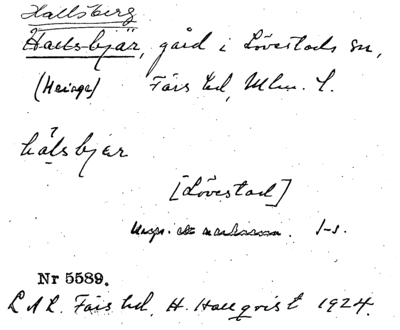 Hallsberg
Hallsbjär, gård i Lövestads sn,
(Heinge) Färs hd, Mlm. L.
hálsbjer
[Lövestad]
Uppr. av markerna. 1-s.
Nr 5589.
L A L. Färs hd. H. Hallqvist 1924.